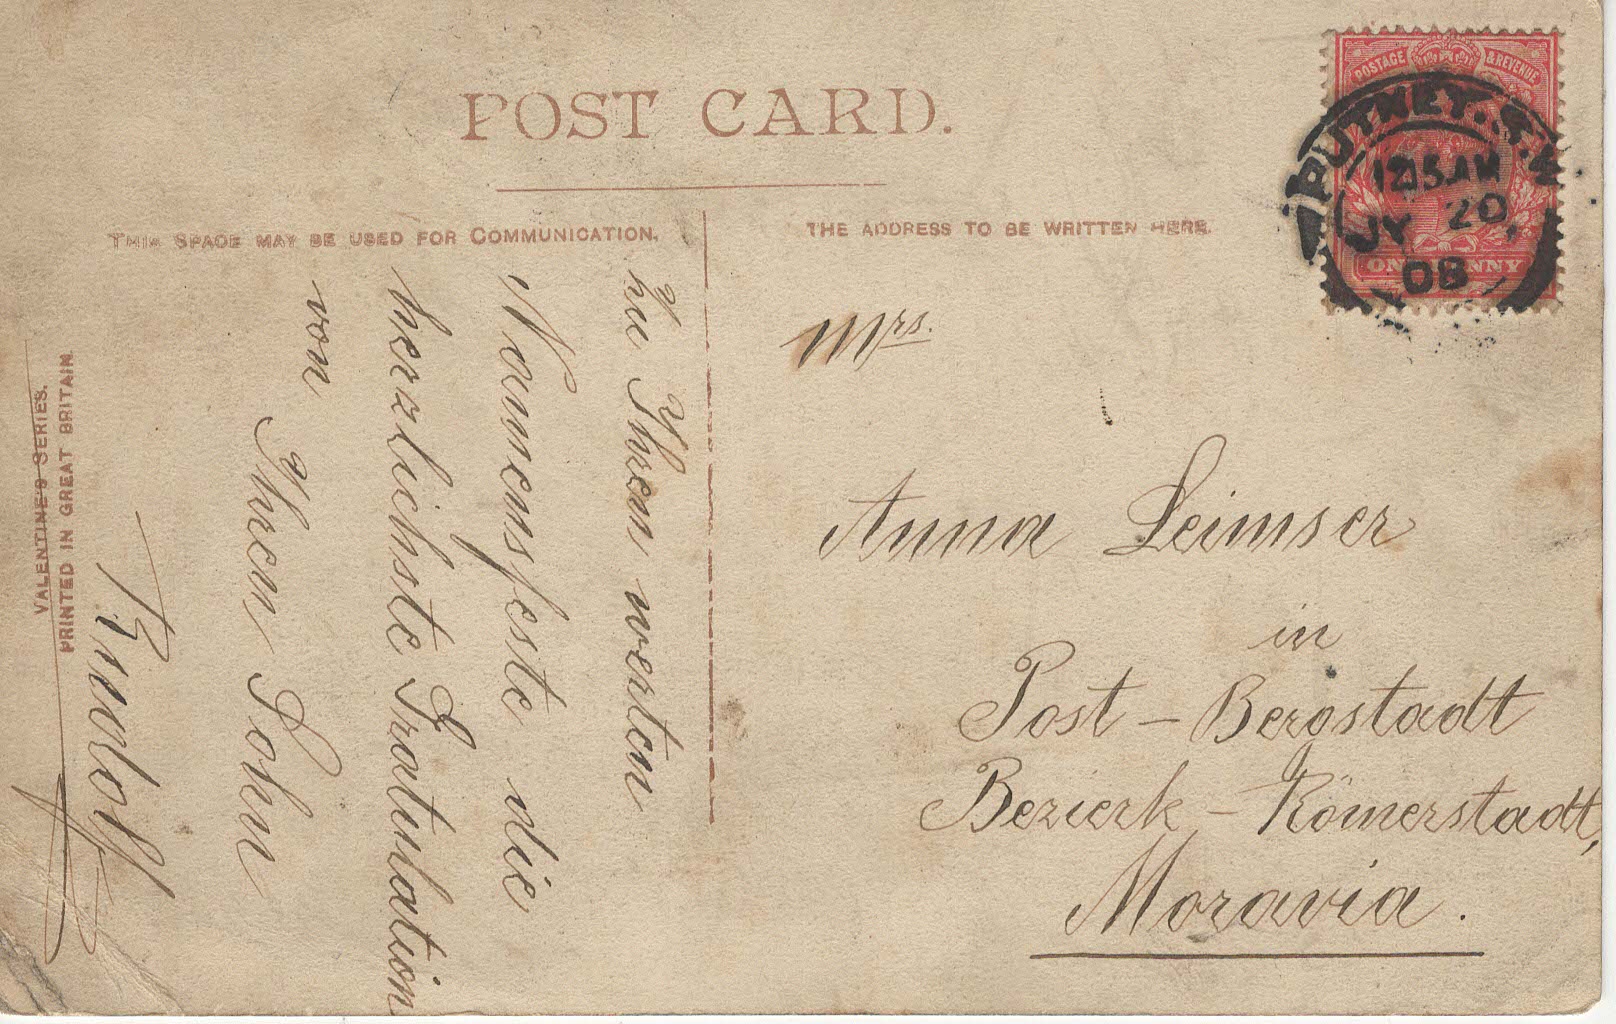 POST CARD.
THIS SPACE MAY BE USED FOR COMMUNICATION.
THE ADDRESS TO BE WRITTEN HERE.
POSTAGE & REVENUE
ONE PENNY
PUTNEY. S.W
12 15 AM
JY 20
08
zu Ihrem werten
Namensfeste die
herzlichste Gratulation
von
Ihrem Sohn
Rudolf
Mrs.
Anna Leimser
in
Post - Bergstadt
Bezierk - Römerstadt,
Moravia.
VALENTINE'S SERIES.
PRINTED IN GREAT BRITAIN.